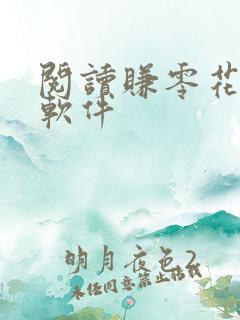 閱讀賺零花
軟件
明月夜色2
未经同意禁止搭我